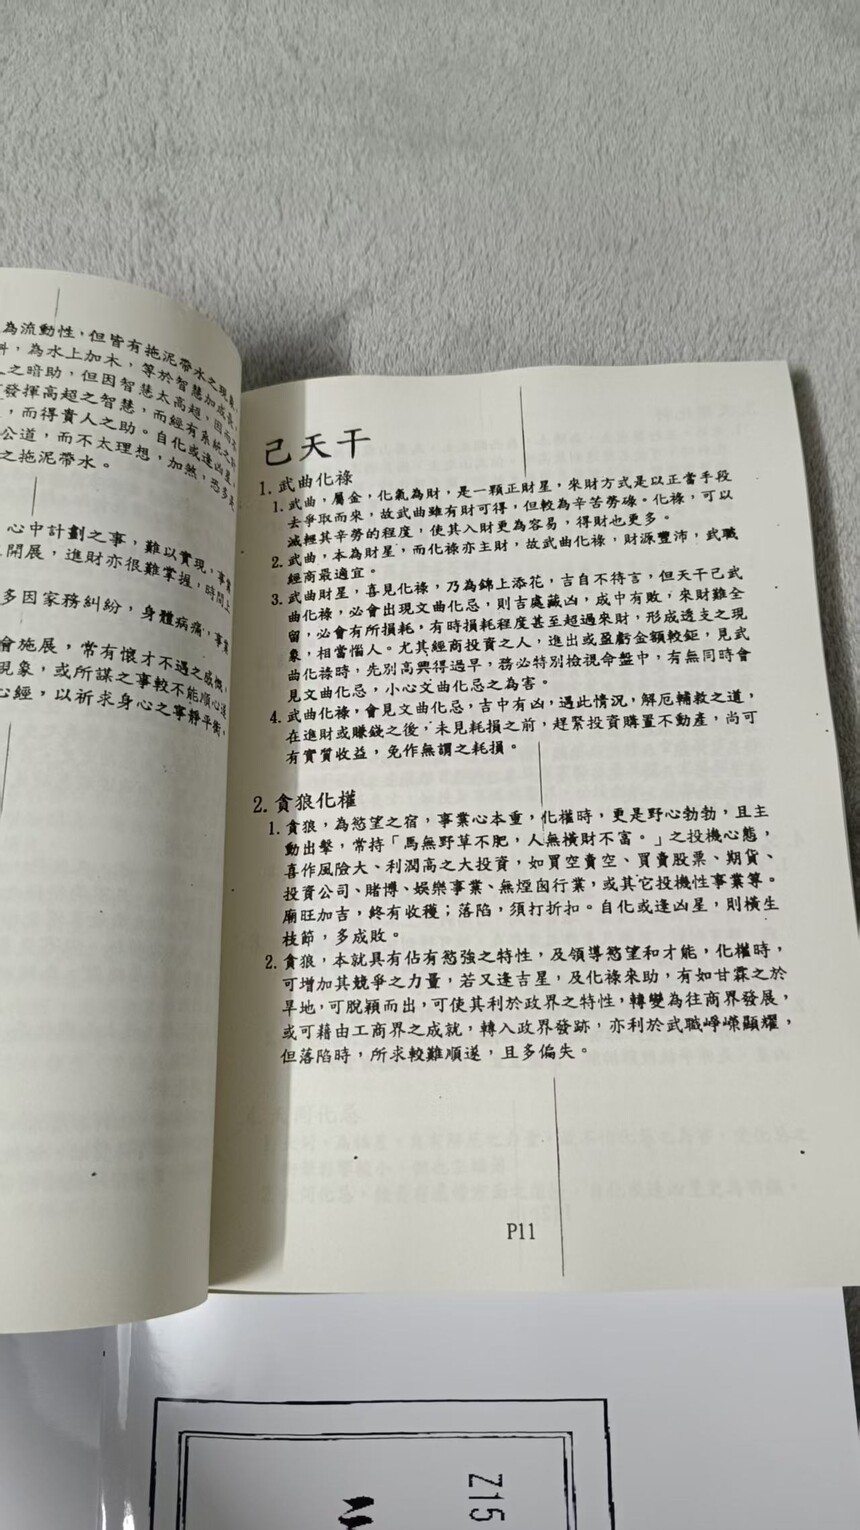 為流動性，但皆有拖泥帶水之現象，
，為水上加木，等於智慧加成長，
之暗助，但因智慧太高超，因而
發揮高超之智慧，而經有系統之
，而得貴人之助。自化或逢凶星，
公道，而不太理想，加煞，恐多
之拖泥帶水。
心中計劃之事，難以實現，事業
開展，進財亦很難掌握，時間上
多因家務糾紛，身體病痛，事業
會施展，常有懷才不遇之感慨，
現象，或所謀之事較不能順心遂
心經，以祈求身心之寧靜平衡。
己天干
1. 武曲化祿
1. 武曲，屬金，化氣為財，是一顆正財星，來財方式是以正當手段
去爭取而來，故武曲雖有財可得，但較為辛苦勞碌。化祿，可以
減輕其辛勞的程度，使其入財更為容易，得財也更多。
2. 武曲，本為財星，而化祿亦主財，故武曲化祿，財源豐沛，武職
經商最適宜。
3. 武曲財星，喜見化祿，乃為錦上添花，吉自不待言，但天干己武
曲化祿，必會出現文曲化忌，則吉處藏凶，成中有敗，來財難全
留，必會有所損耗，有時損耗程度甚至超過來財，形成透支之現
象，相當惱人。尤其經商投資之人，進出或盈虧金額較鉅，見武
曲化祿時，先別高興得過早，務必特別檢視命盤中，有無同時會
見文曲化忌，小心文曲化忌之為害。
4. 武曲化祿，會見文曲化忌，吉中有凶，遇此情況，解厄輔救之道，
在進財或賺錢之後，未見耗損之前，趕緊投資購置不動產，尚可
有實質收益，免作無謂之耗損。
2. 貪狼化權
1. 貪狼，為慾望之宿，事業心本重，化權時，更是野心勃勃，且主
動出擊，常持「馬無野草不肥，人無橫財不富。」之投機心態，
喜作風險大、利潤高之大投資，如買空賣空、買賣股票、期貨、
投資公司、賭博、娛樂事業、無煙囪行業，或其它投機性事業等。
廟旺加吉，終有收穫；落陷，須打折扣。自化或逢凶星，則橫生
枝節，多成敗。
2. 貪狼，本就具有佔有慾強之特性，及領導慾望和才能，化權時，
可增加其競爭之力量，若又逢吉星，及化祿來助，有如甘霖之於
旱地，可脫穎而出，可使其利於政界之特性，轉變為往商界發展，
或可藉由工商界之成就，轉入政界發跡，亦利於武職崢嶸顯耀，
但落陷時，所求較難順遂，且多偏失。
P11
Z15